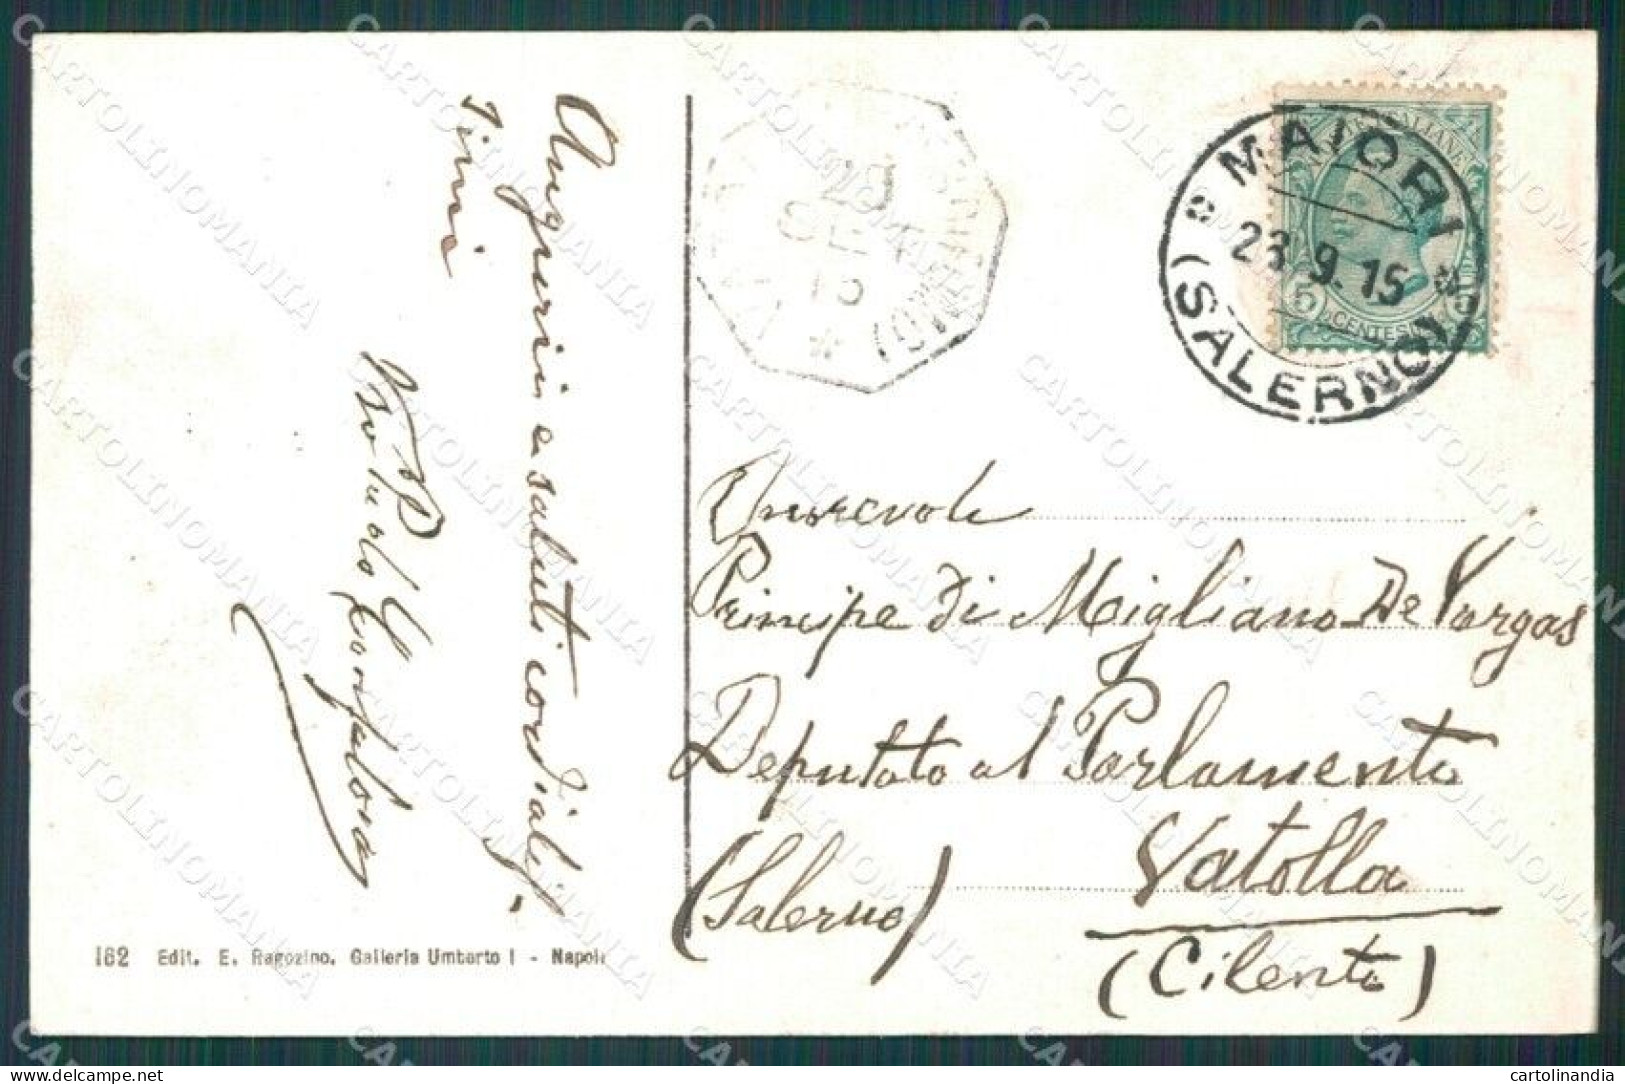 Auguri e saluti cordialis-
simi
MAIORI
23.9.15
(SALERNO)
POSTE ITALIANE
5 CENTESIMI 5
29
SET
15
Onorevole
Principe di Migliano De Vargas
Deputato al Parlamento
Vatolla
(Salerno)
(Cilento)
162 Edit. E. Ragozino. Galleria Umberto I - Napoli
CARTOLINOMANIA
cartolinandia